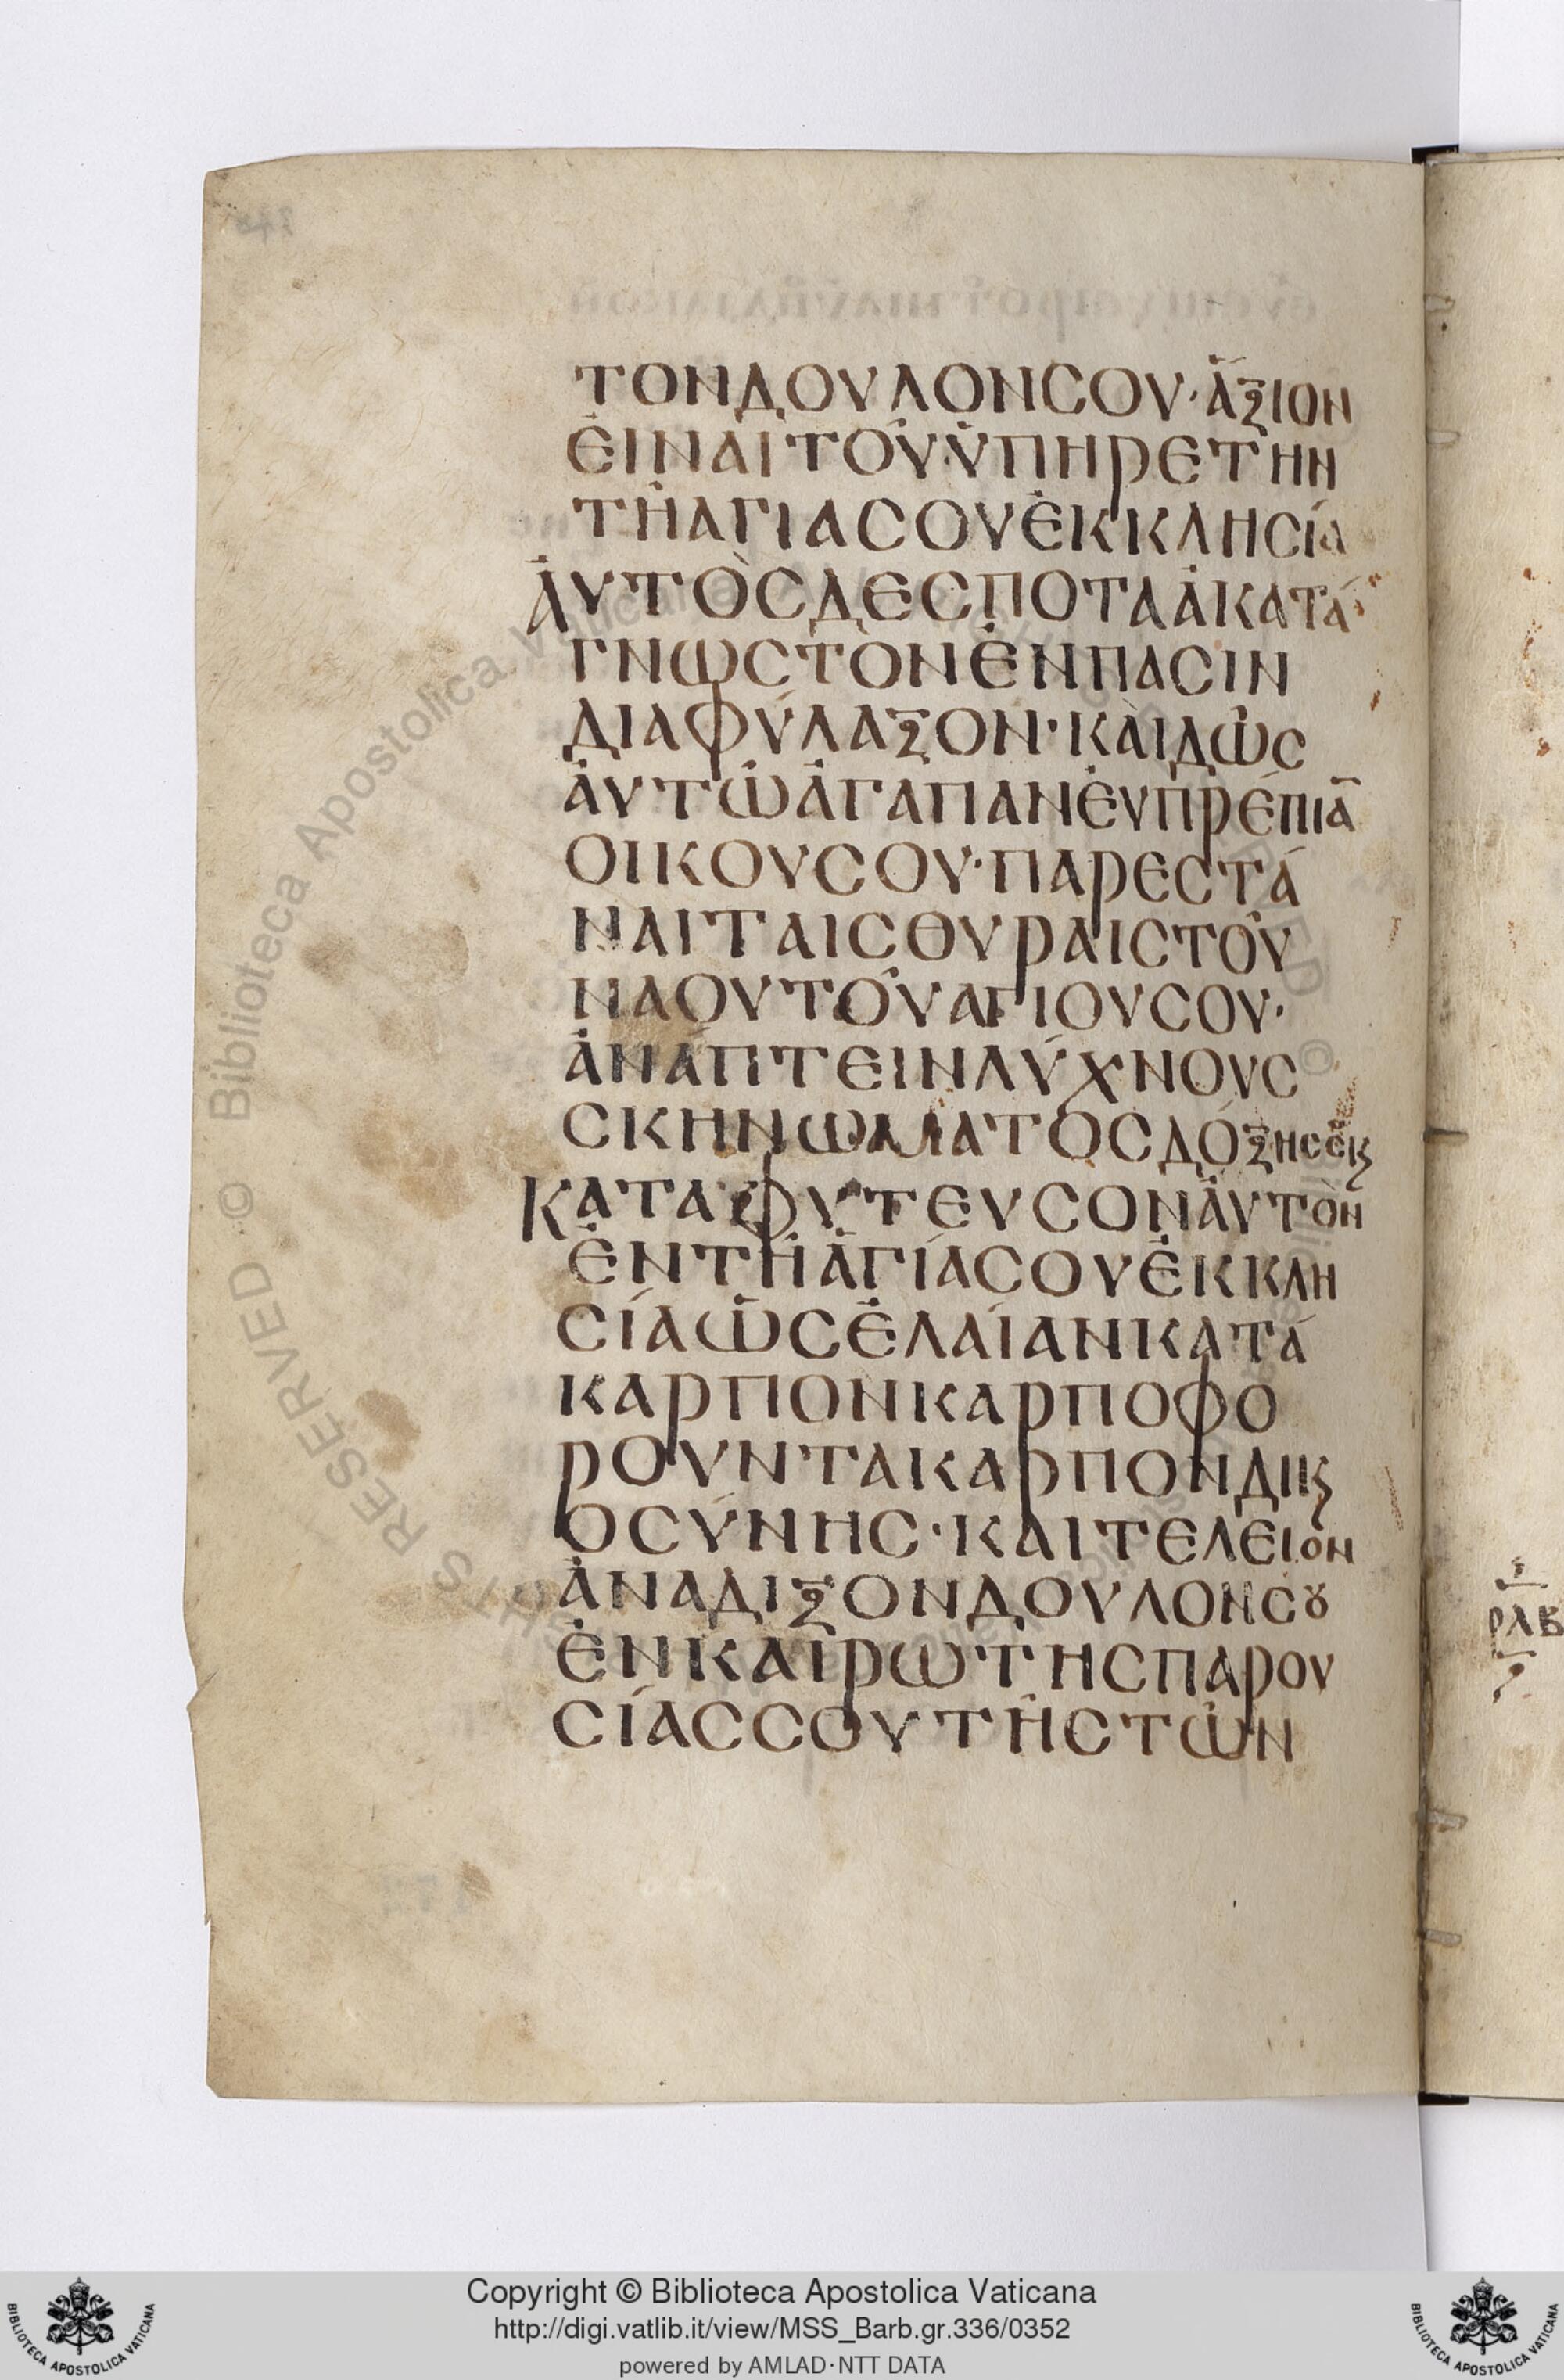 ΤΟΝΔΟΥΛΟΝϹΟΥ·ἌΞΙΟΝ
ἘΙΝΑΙΤΟΥ̓ὙΠΗΡΕΤΗΝ
ΤΗ̇ΑΓΙΑϹΟΥἘΚΚΛΗϹΊΑ
ἈΥΤῸϹΔΕϹΠΟΤΑἈΚΑΤΆ
ΓΝΩϹΤΟΝἘΝΠΑϹΙΝ
ΔΙΑΦΎΛΑΞΟΝ·ΚᾺΙΔΩ̇Ϲ
ἈΥΤΩ̇ἈΓΑΠΑΝἘΥΠΡΈΠΙΑ̅
ΟΙΚΟΥϹΟΥ·ΠΑΡΕϹΤΆ
ΝΑΙΤΑΙϹΘΥΡΑΙϹΤΟΥ̓
ΝΑΟΥΤΟΥ̓ΑΓΙΟΥϹΟΥ·
ἈΝΆΠΤΕΙΝΛΎΧΝΟΥϹ
ϹΚΗΝΩΜΑΤΟϹΔΌΞΗϹϹΕΚϗ
ΚΑΤΑΦΥΤΕΥϹΟΝἈΥΤῸΝ
ἘΝΤΗ̇ἉΓΊΑϹΟΥἘΚΚΛΗ
ϹΊΑὩϹἘΛΑΊΑΝΚΑΤΆ
ΚΑΡΠΟΝΚΑΡΠΟΦΟ
ΡΟΥΝΤΑΚΑΡΠΟΝΔΙΚϗ
ΟϹΎΝΗϹ·ΚΑΙΤΕΛΕΙΟΝ
ἈΝΑΔΙΞΟΝΔΟΥΛΟΝϹȣ
ἘΝΚΑΙΡΩΤΗϹΠΑΡΟΥ
ϹΊΑϹϹΟΥΤΗ̇ϹΤΩ̇Ν
ΡΛΒ
© Biblioteca Apostolica Vaticana
RIGHTS RESERVED
Copyright © Biblioteca Apostolica Vaticana
http://digi.vatlib.it/view/MSS_Barb.gr.336/0352
powered by AMLAD·NTT DATA
BIBLIOTECA APOSTOLICA VATICANA
BIBLIOTECA APOSTOLICA VATICANA